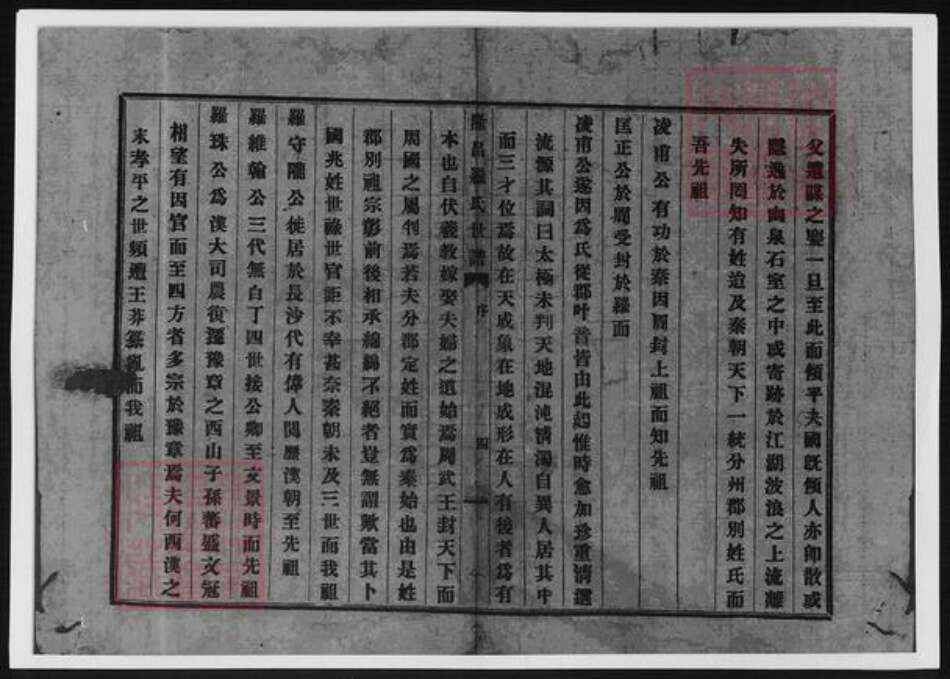 父遺謀之鑿一旦至此而傾乎夫國旣傾人亦卽散或
隱逸於幽泉石室之中或寄跡於江湖波浪之上流離
失所罔知有姓迨及秦朝天下一統分州郡別姓氏而
吾先祖
凌甫公有功於秦因圖封上祖而知先祖
匡正公於周受封於羅而
凌甫公遂因爲氏從郡叶音皆由此起惟時愈加珍重淸選
流源其詞曰太極未判天地混沌淸濁自異人居其中
而三才位焉故在天成象在地成形在人有後者爲有
隆昌羅氏世譜 序 四
本也自伏羲敎嫁娶夫婦之道始焉周武王封天下而
周國之屬刋焉若夫分郡定姓而實爲秦始也由是姓
郡別祖宗彰前後相承綿綿不絕者豈無謂歟當其卜
國兆姓世祿世官詎不幸甚奈秦朝未及三世而我祖
羅守隴公徙居於長沙代有偉人閱歷漢朝至先祖
羅維翰公三代無白丁四世接公卿至文景時而先祖
羅珠公爲漢大司農復遷豫章之西山子孫蕃盛文冠
相望有因官而至四方者多宗於豫章焉夫何西漢之
末孝平之世頻遭王莽簒亂而我祖